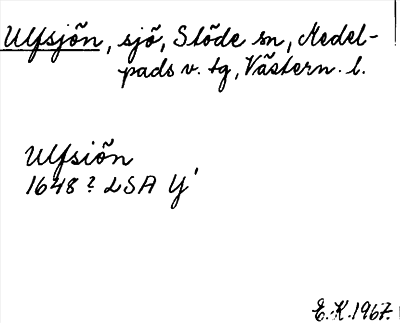 Ulfsjön, sjö, Stöde sn, Medel-
pads v. tg, Västern. l.
Ulfsiön
1648? LSA Y'
E.K. 1967.